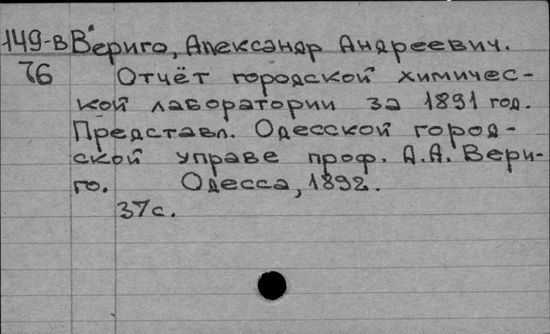 149-В Вериго, Александр Андреевич.
76 Отчёт городской химичес-
кой лаборатории за 1891 год.
Представл. Одесской город-
ской управе проф. А.А. Вери-
го. Одесса, 1892.
37с.